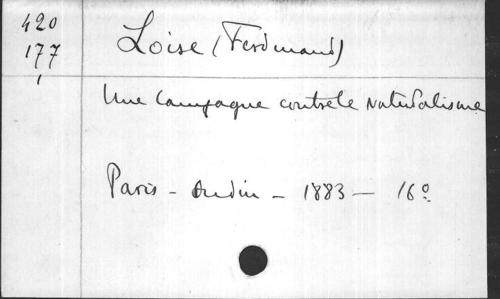 420
177
1
Loise (Ferdinand)
Une Campagne contre le Naturalisme
Paris - Audin - 1883 - 16º